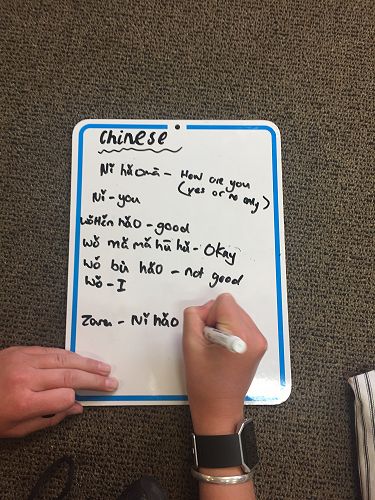 Chinese
Nǐ hǎo mā - How are you
(yes or no only)
Nǐ - you
wǒ Hěn hǎo - good
wǒ mǎ mǎ hū hū - Okay
wǒ bù hǎo - not good
wǒ - I
Zara - Nǐ hǎo